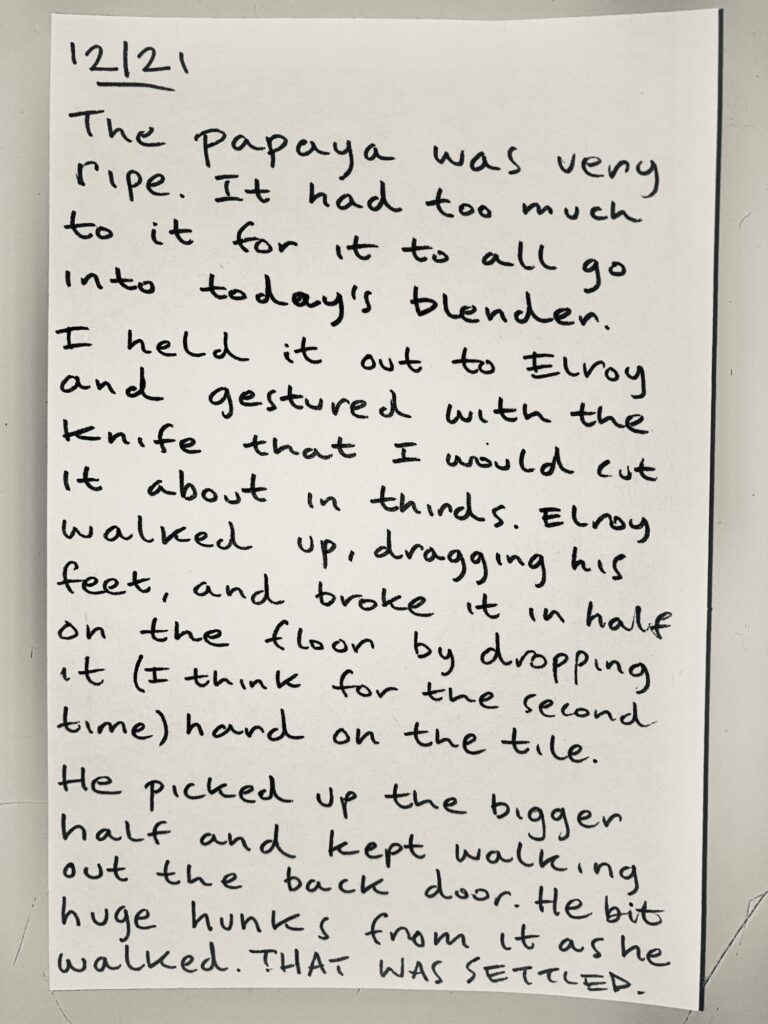 12/21
The papaya was very
ripe. It had too much
to it for it to all go
into today's blender.
I held it out to Elroy
and gestured with the
knife that I would cut
it about in thirds. Elroy
walked up, dragging his
feet, and broke it in half
on the floor by dropping
it (I think for the second
time) hard on the tile.
He picked up the bigger
half and kept walking
out the back door. He bit
huge hunks from it as he
walked. THAT WAS SETTLED.